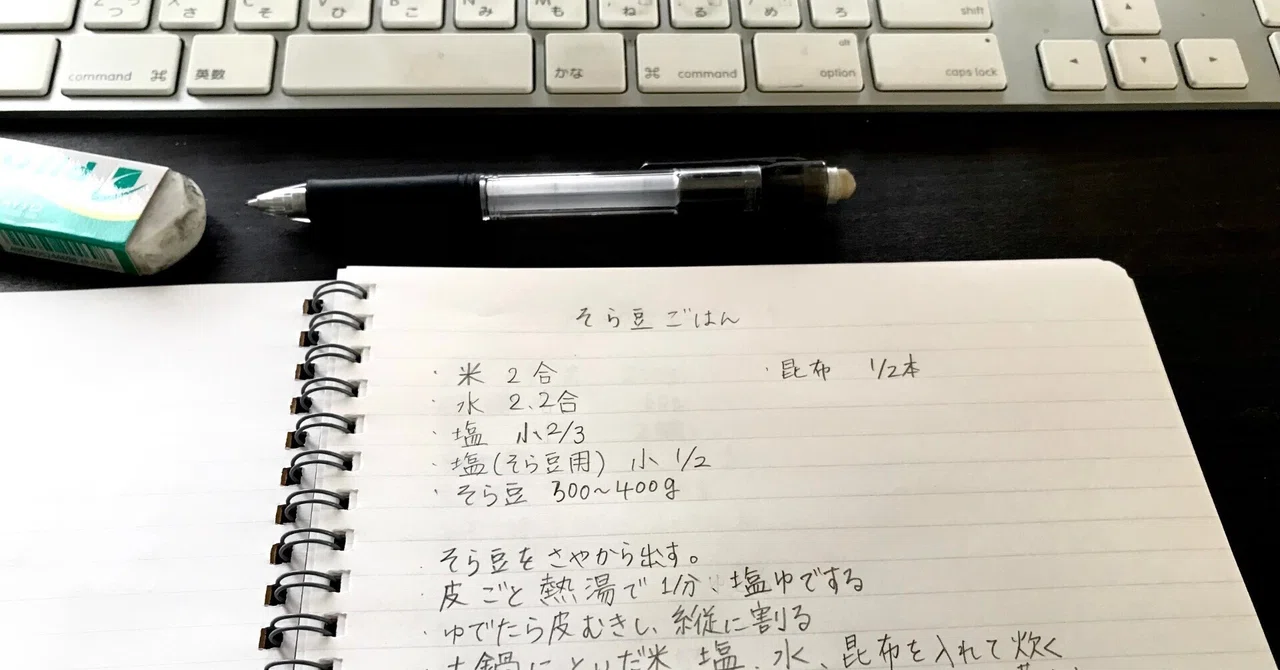 つ
さ
そ
ひ
こ
み
も
ね
る
め
ろ
shift
command ⌘
英数
かな
⌘ command
alt
option
caps lock
そら豆ごはん
・米 2合
・水 2.2合
・塩 小2/3
・塩(そら豆用) 小1/2
・そら豆 300〜400g
・昆布 1/2本
・そら豆をさやから出す。
・皮ごと熱湯で1分、塩ゆでする
・ゆでたら皮むきし、縦に割る
・土鍋にといだ米、塩、水、昆布を入れて炊く